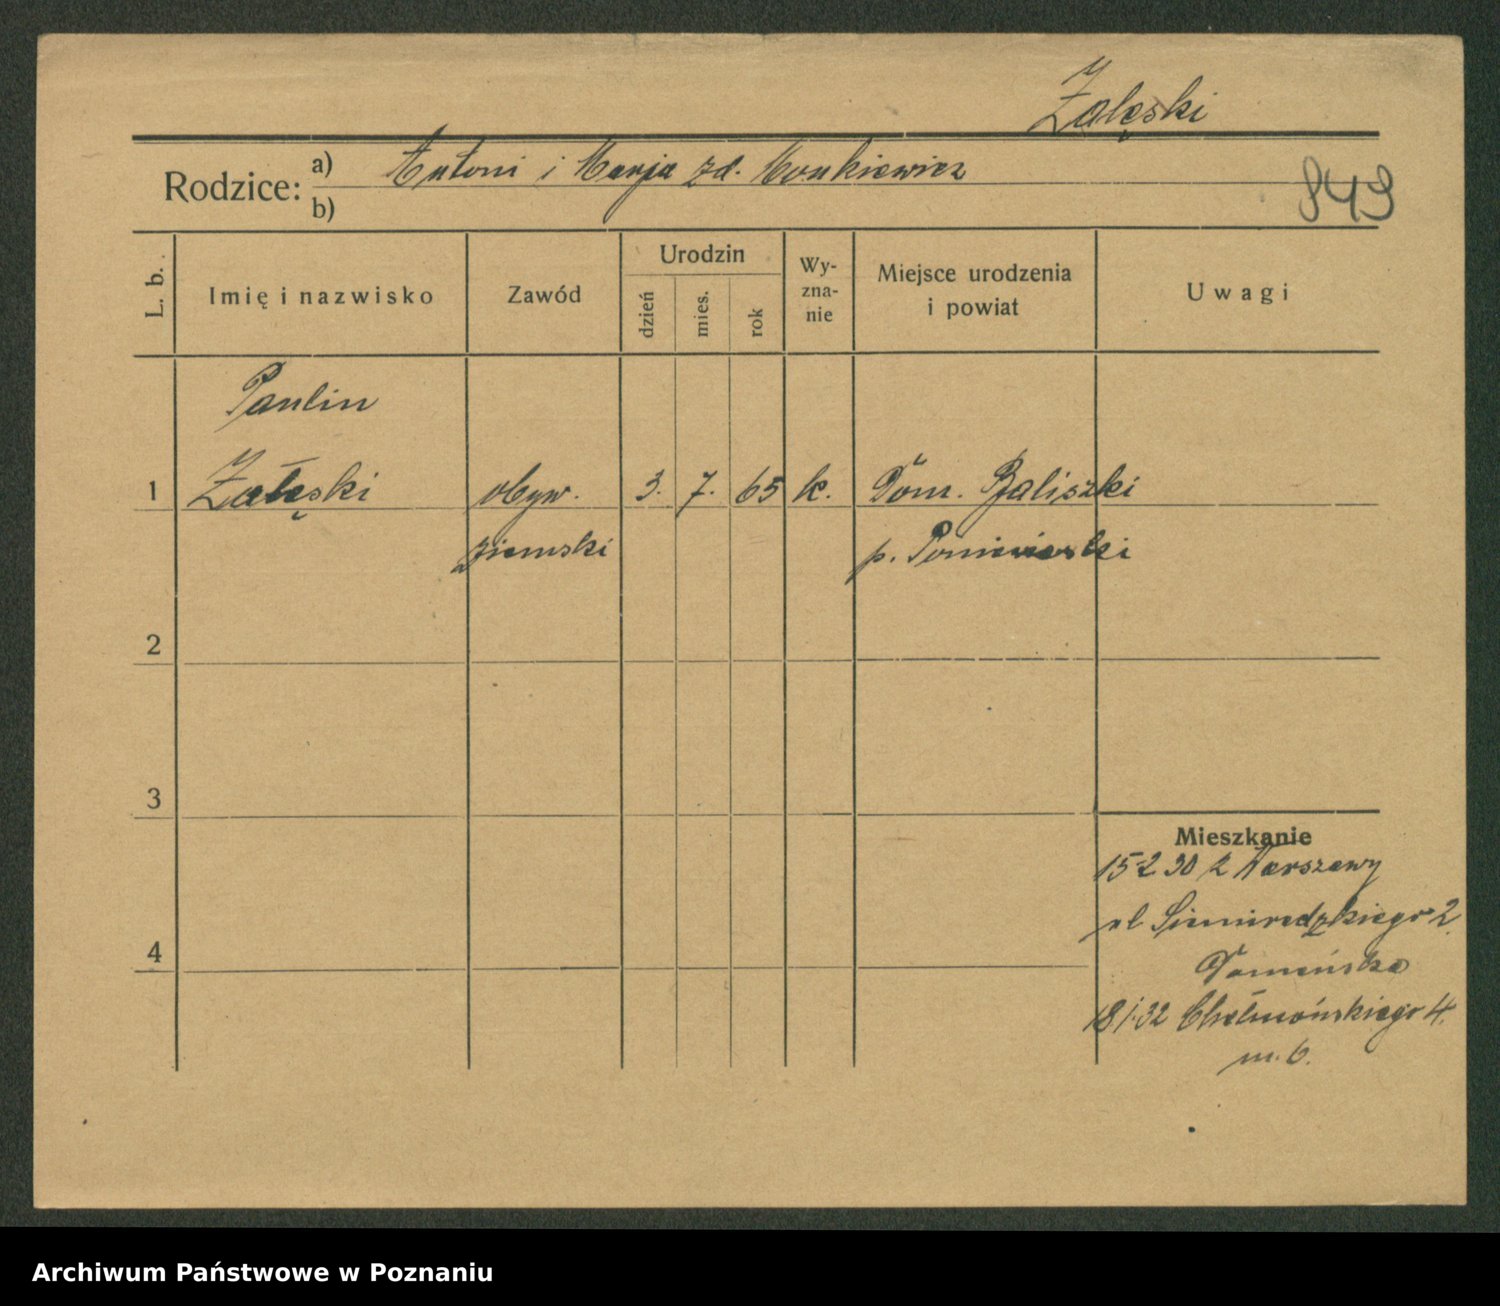 Zalęski
Rodzice: a) Antoni i Marja zd. Monkiewicz
b)
849
L. b.
Imię i nazwisko
Zawód
Urodzin
dzień
mies.
rok
Wy-
zna-
nie
Miejsce urodzenia
i powiat
Uwagi
Paulin
1 Załęski obyw. 3. 7. 65 k. Dom. Baliszki
ziemski p. Poniewieski
2
3
Mieszkanie
15 2 30 z Warszawy
ul Siemiradzkiego 2.
4
18 1.32 Chełmońskiego 4.
m. 6.
Archiwum Państwowe w Poznaniu